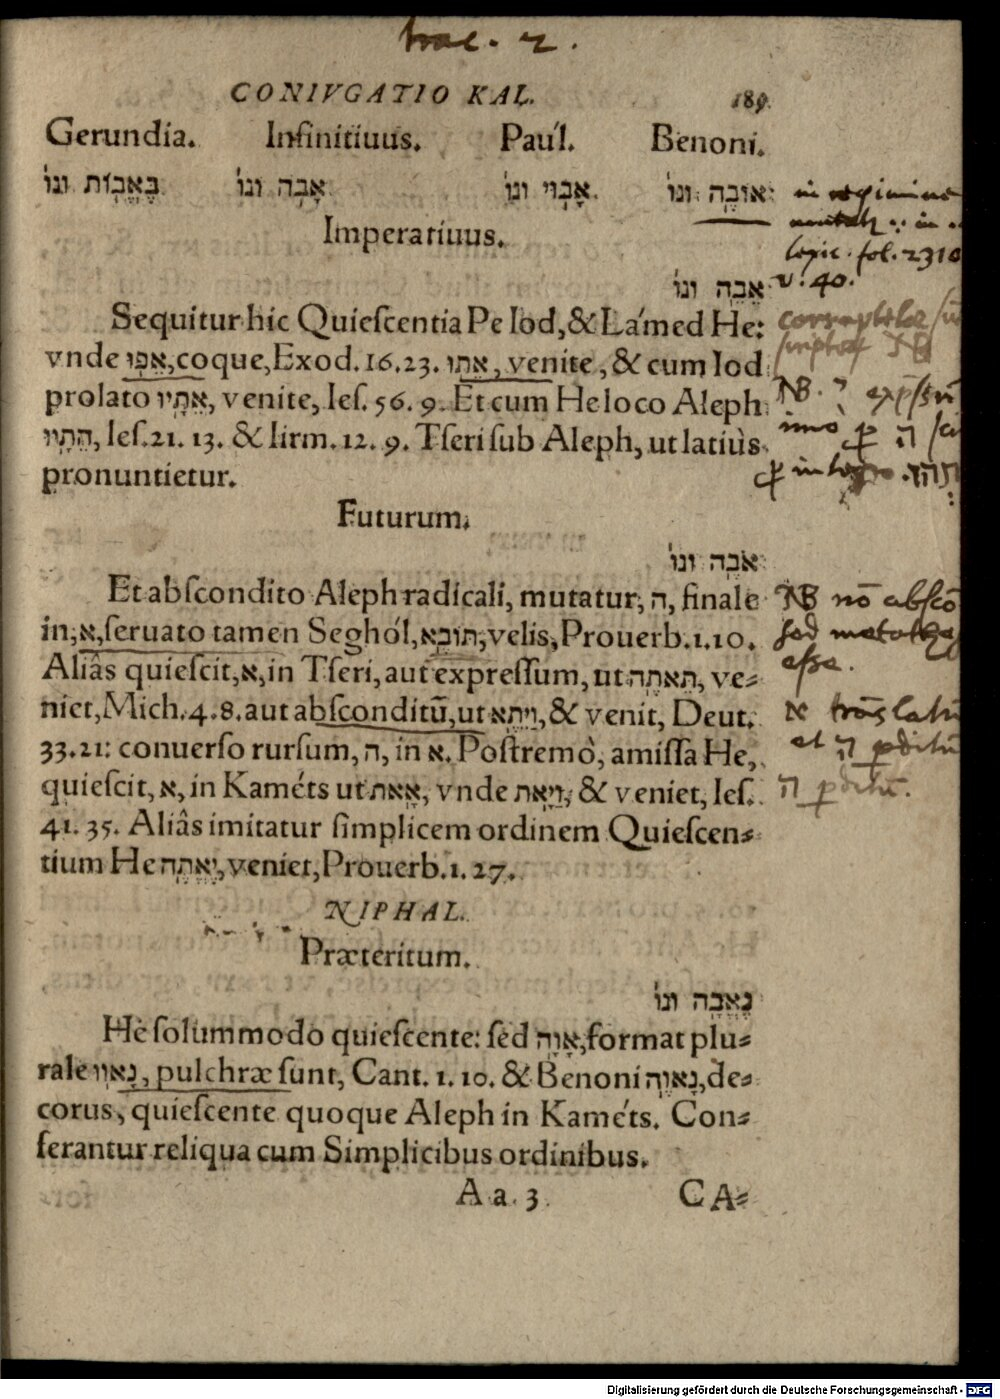 trac. 2.
CONIVGATIO KAL. 189.
Gerundia. Infinitiuus. Paúl. Benoni.
בֶּאֱבוֹת וגו׳ אָבֹה וגו׳ אָבוּי וגו׳ אוֹבֶה וגו׳
in regimine
Imperatiuus.
fol. 2310
v. 40.
אֱבֵה וגו׳
Sequitur hic Quieſcentia Pe Iod, & Lámed He:
vnde אֵפוּ, coque, Exod. 16. 23. אֵתוּ, venite, & cum Iod
prolato אֵתָיוּ, venite, Ieſ. 56. 9. Et cum He loco Aleph
הֵתָיוּ, Ieſ. 21. 13. & Iirm. 12. 9. Tſeri ſub Aleph, ut latiùs
pronuntietur.
Futurum.
אֹבֶה וגו׳
Et abſcondito Aleph radicali, mutatur, ה, finale
in, א, ſeruato tamen Seghól, תּוֹבֶא, velis, Prouerb. 1. 10.
Aliâs quieſcit, א, in Tſeri, aut expreſſum, ut תֵּאתֶה, ve⸗
niet, Mich. 4. 8. aut abſconditũ, ut וַיֵּתֵא, & venit, Deut.
33. 21: conuerſo rurſum, ה, in א. Poſtremò, amiſſa He,
quieſcit, א, in Kaméts ut אָאת, vnde וַיָּאת, & veniet, Ieſ.
41. 35. Aliâs imitatur ſimplicem ordinem Quieſcen⸗
tium He יֶאֱתֶה, veniet, Prouerb. 1. 27.
NB nõ abſcõ
ſed
eſſe.
א trãslatũ
et ה pditũ
ה pditũ.
NIPHAL.
Præteritum.
נֶאֱבָה וגו׳
He ſolummodo quieſcente: ſed אָוָה, format plu⸗
rale נָאווּ, pulchræ ſunt, Cant. 1. 10. & Benoni נָאוֶה, de⸗
corus, quieſcente quoque Aleph in Kaméts. Con⸗
ferantur reliqua cum Simplicibus ordinibus.
A a 3 CA⸗
Digitalisierung gefördert durch die Deutsche Forschungsgemeinschaft - DFG